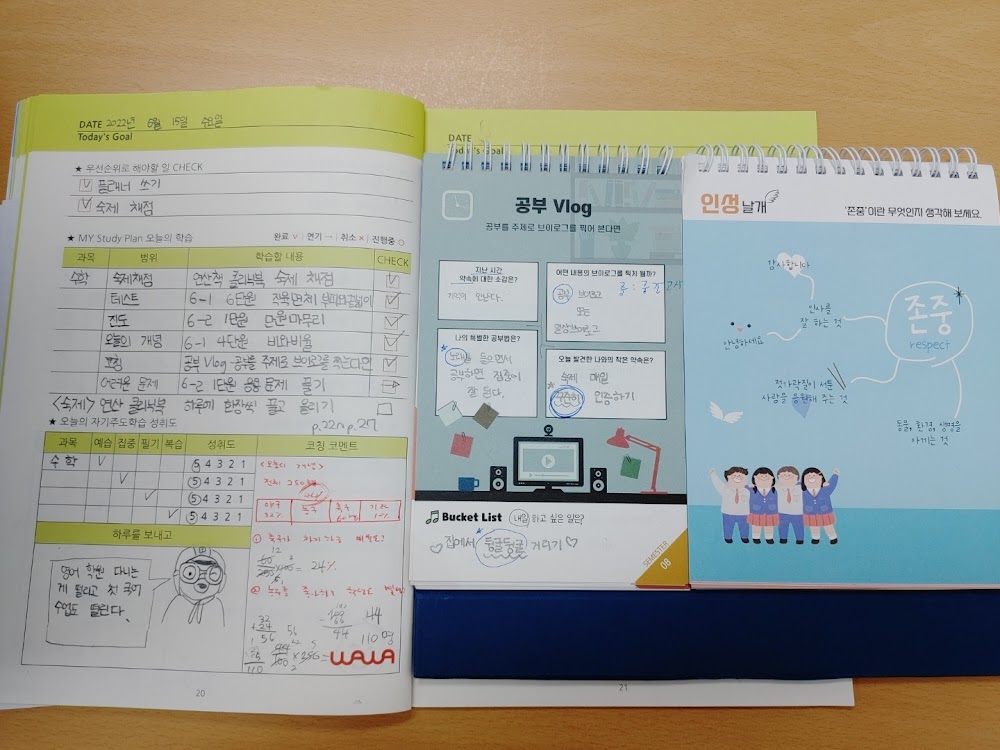 DATE 2022년 6월 15일 수요일
Today's Goal
★ 우선순위로 해야할 일 CHECK
V 플래너 쓰기
V 숙제 채점
★ MY Study Plan 오늘의 학습 완료 V | 연기 → | 취소 × | 진행중 ○
과목 범위 학습할 내용 CHECK
수학 숙제채점 연산책 클리닉북 숙제 채점 V
테스트 6-1 6단원 직육면체 부피와겉넓이 V
진도 6-2 1단원 단원마무리 V
오늘의 개념 6-1 4단원 비와비율 V
코칭 공부 Vlog-공부를 주제로 브이로그를 찍는다면 V
어려운 문제 6-2 1단원 응용문제 풀기 →
<숙제> 연산 클리닉북 하루에 한장씩 풀고 올리기
p.22~p.27
★ 오늘의 자기주도학습 성취도
과목 예습 집중 필기 복습 성취도 코칭 코멘트
수학 V 5 4 3 2 1
V 5 4 3 2 1
V 5 4 3 2 1
V 5 4 3 2 1
<오늘의 개념>
= 24%
44
110명
WAWA
하루를 보내고
영어 학원 다니는
게 떨리고 첫 국어
수업도 떨린다.
20
DATE
Today's Goal
21
공부 Vlog
공부를 주제로 브이로그를 찍어 본다면
지난 시간
약속에 대한 소감은?
기억이 안난다.
어떤 내용의 브이로그를 찍게 될까?
공부 브이로그
또는
일상브이로그
나의 특별한 공부법은?
노래를 들으면서
공부하면 집중이
잘 된다.
오늘 발견한 나와의 작은 약속은?
숙제 매일
꾸준히 인증하기
Bucket List 내일 하고 싶은 일은?
집에서 뒹굴뒹굴 거리기 ♡
SEMESTER
08
인성날개
'존중'이란 무엇인지 생각해 보세요.
감사합니다
인사를
잘 하는 것
안녕하세요
존중
respect
젓가락질이 서툰
사람을 응원해 주는 것
동물, 환경, 생명을
아끼는 것